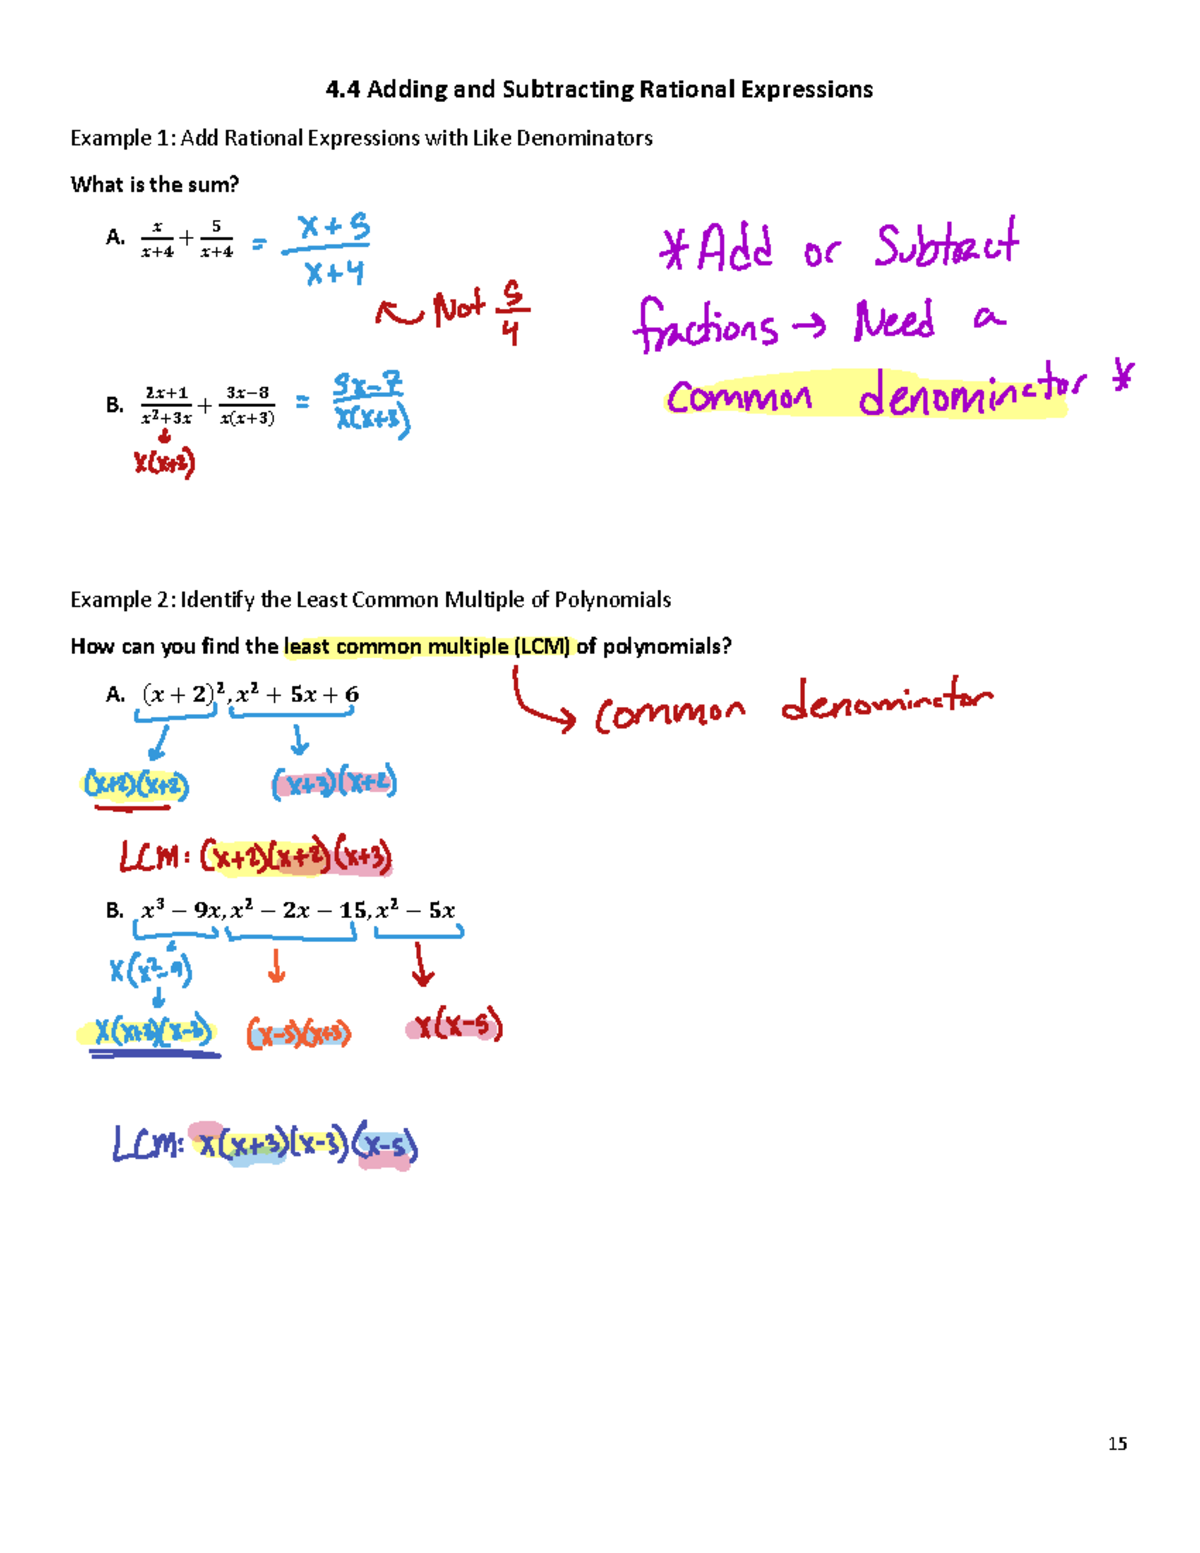 4.4 Adding and Subtracting Rational Expressions
Example 1: Add Rational Expressions with Like Denominators
What is the sum?
A. x/(x+4) + 5/(x+4) = (x+5)/(x+4)
*Add or Subtract
fractions → Need a
common denominator *
↖ Not 5/4
B. (2x+1)/(x²+3x) + (3x−8)/(x(x+3)) = (5x−7)/(x(x+3))
x(x+3)
Example 2: Identify the Least Common Multiple of Polynomials
How can you find the least common multiple (LCM) of polynomials?
A. (x + 2)², x² + 5x + 6
→ common denominator
(x+2)(x+2) (x+3)(x+2)
LCM: (x+2)(x+2)(x+3)
B. x³ − 9x, x² − 2x − 15, x² − 5x
x(x²−9)
x(x+3)(x−3) (x−5)(x+3) x(x−5)
LCM: x(x+3)(x−3)(x−5)
15